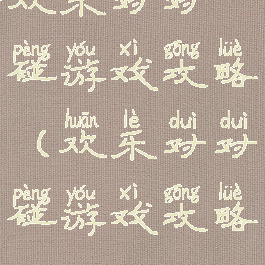 欢乐对对
pèng yóu xì gōng lüè
碰游戏攻略
huān lè duì duì
（欢乐对对
pèng yóu xì gōng lüè
碰游戏攻略